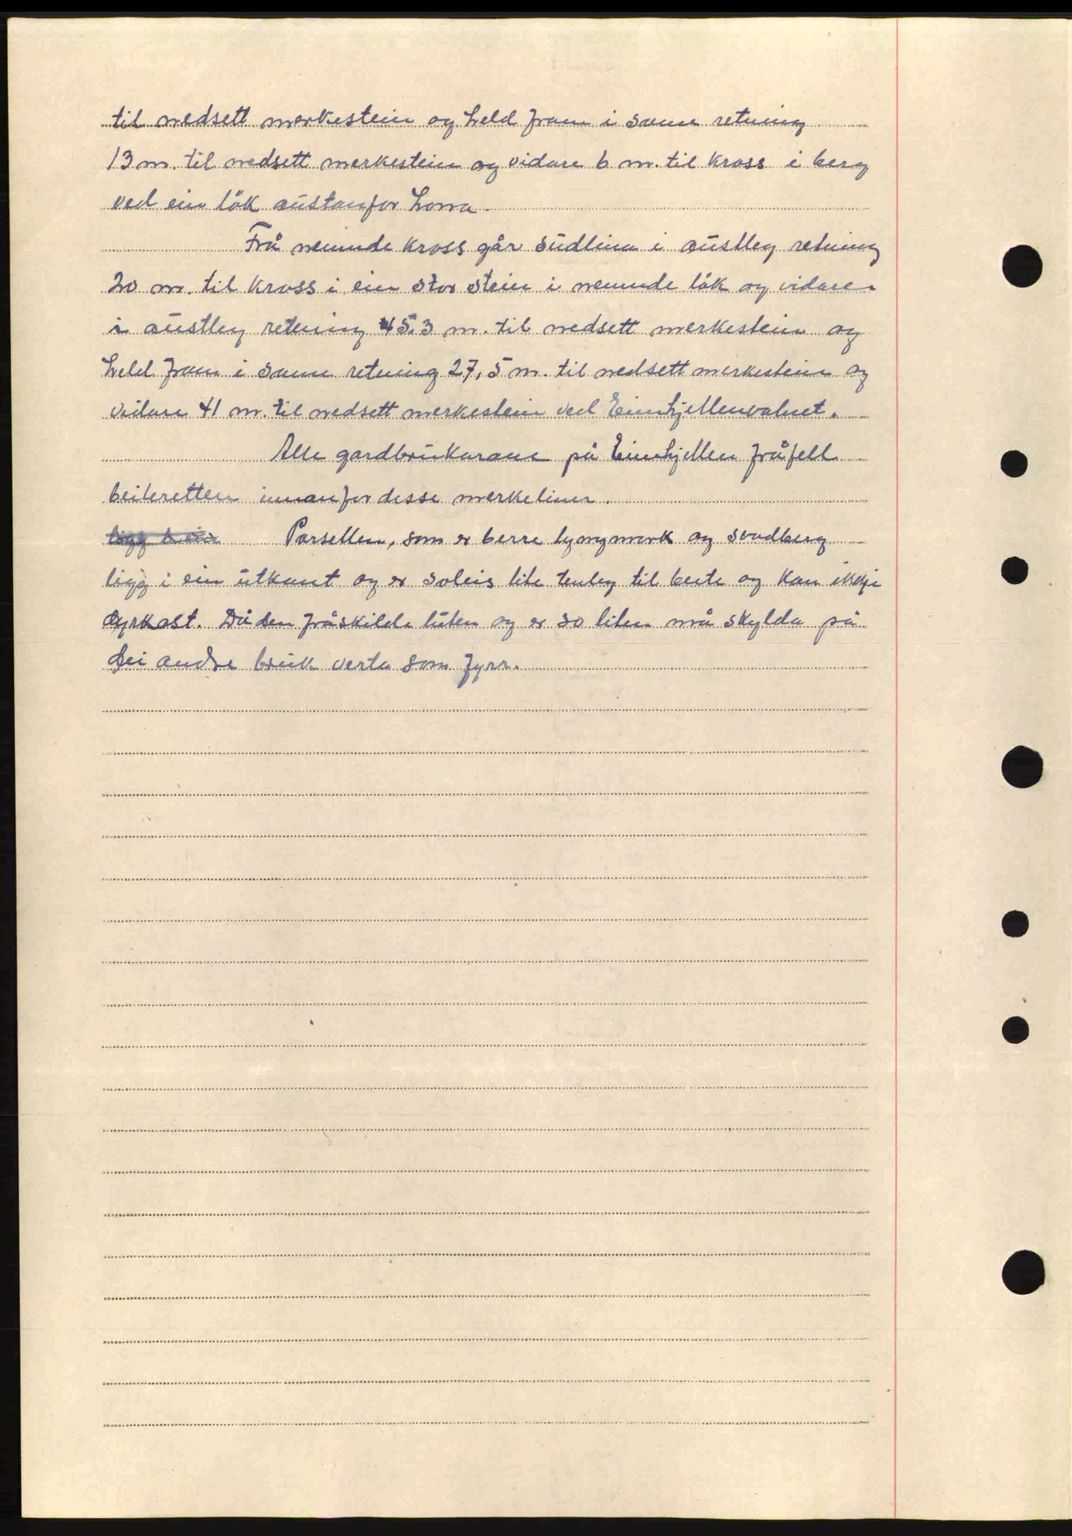 til nedsett merkestein og held fram i same retning
13 m. til nedsett merkestein og vidare 6 m. til kross i berg
ved ein løk austanfor
Frå nemnde kross går sudlina i austleg retning
20 m. til kross i ein stor stein i nemnde løk og vidare
i austleg retning 45.3 m. til nedsett merkestein og
held fram i same retning 27,5 m. til nedsett merkestein og
vidare 41 m. til nedsett merkestein ved Einhjellenvatnet.
Alle gardbrukarane på Einhjellen fråfell
beiteretten innanfor desse merkeliner.
ligg Parsellen, som er berre lyngmork og svadberg
ligg i ein utkant og er soleis lite tenleg til beite og kan ikkje
dyrkast. Då den fråskilde luten og er so liten må skylda på
dei andre bruk verta som fyrr.